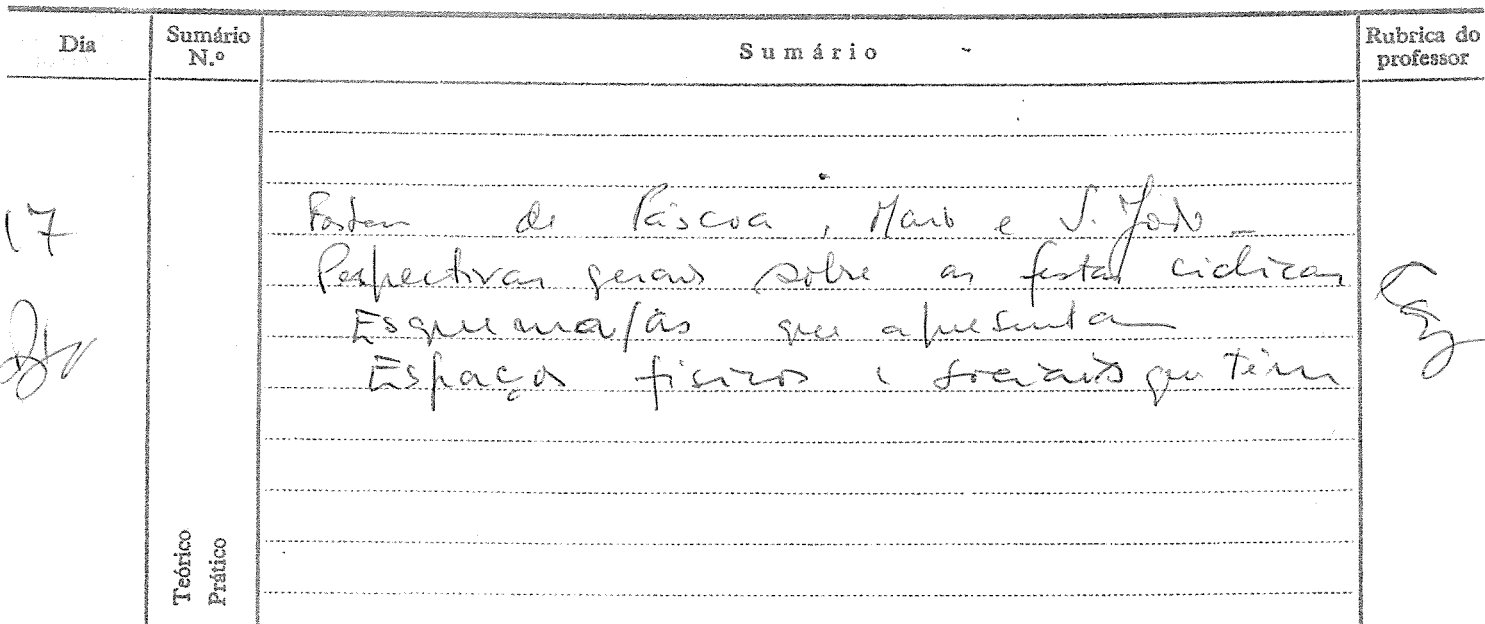 Dia
Sumário N.º
Sumário
Rubrica do professor
17
Festas de Páscoa, Maio e S. João -
Perspectivas gerais sobre as festas cíclicas
Esquema/ãs que apresentam
Espaços físicos e sociais que têm
Teórico
Prático